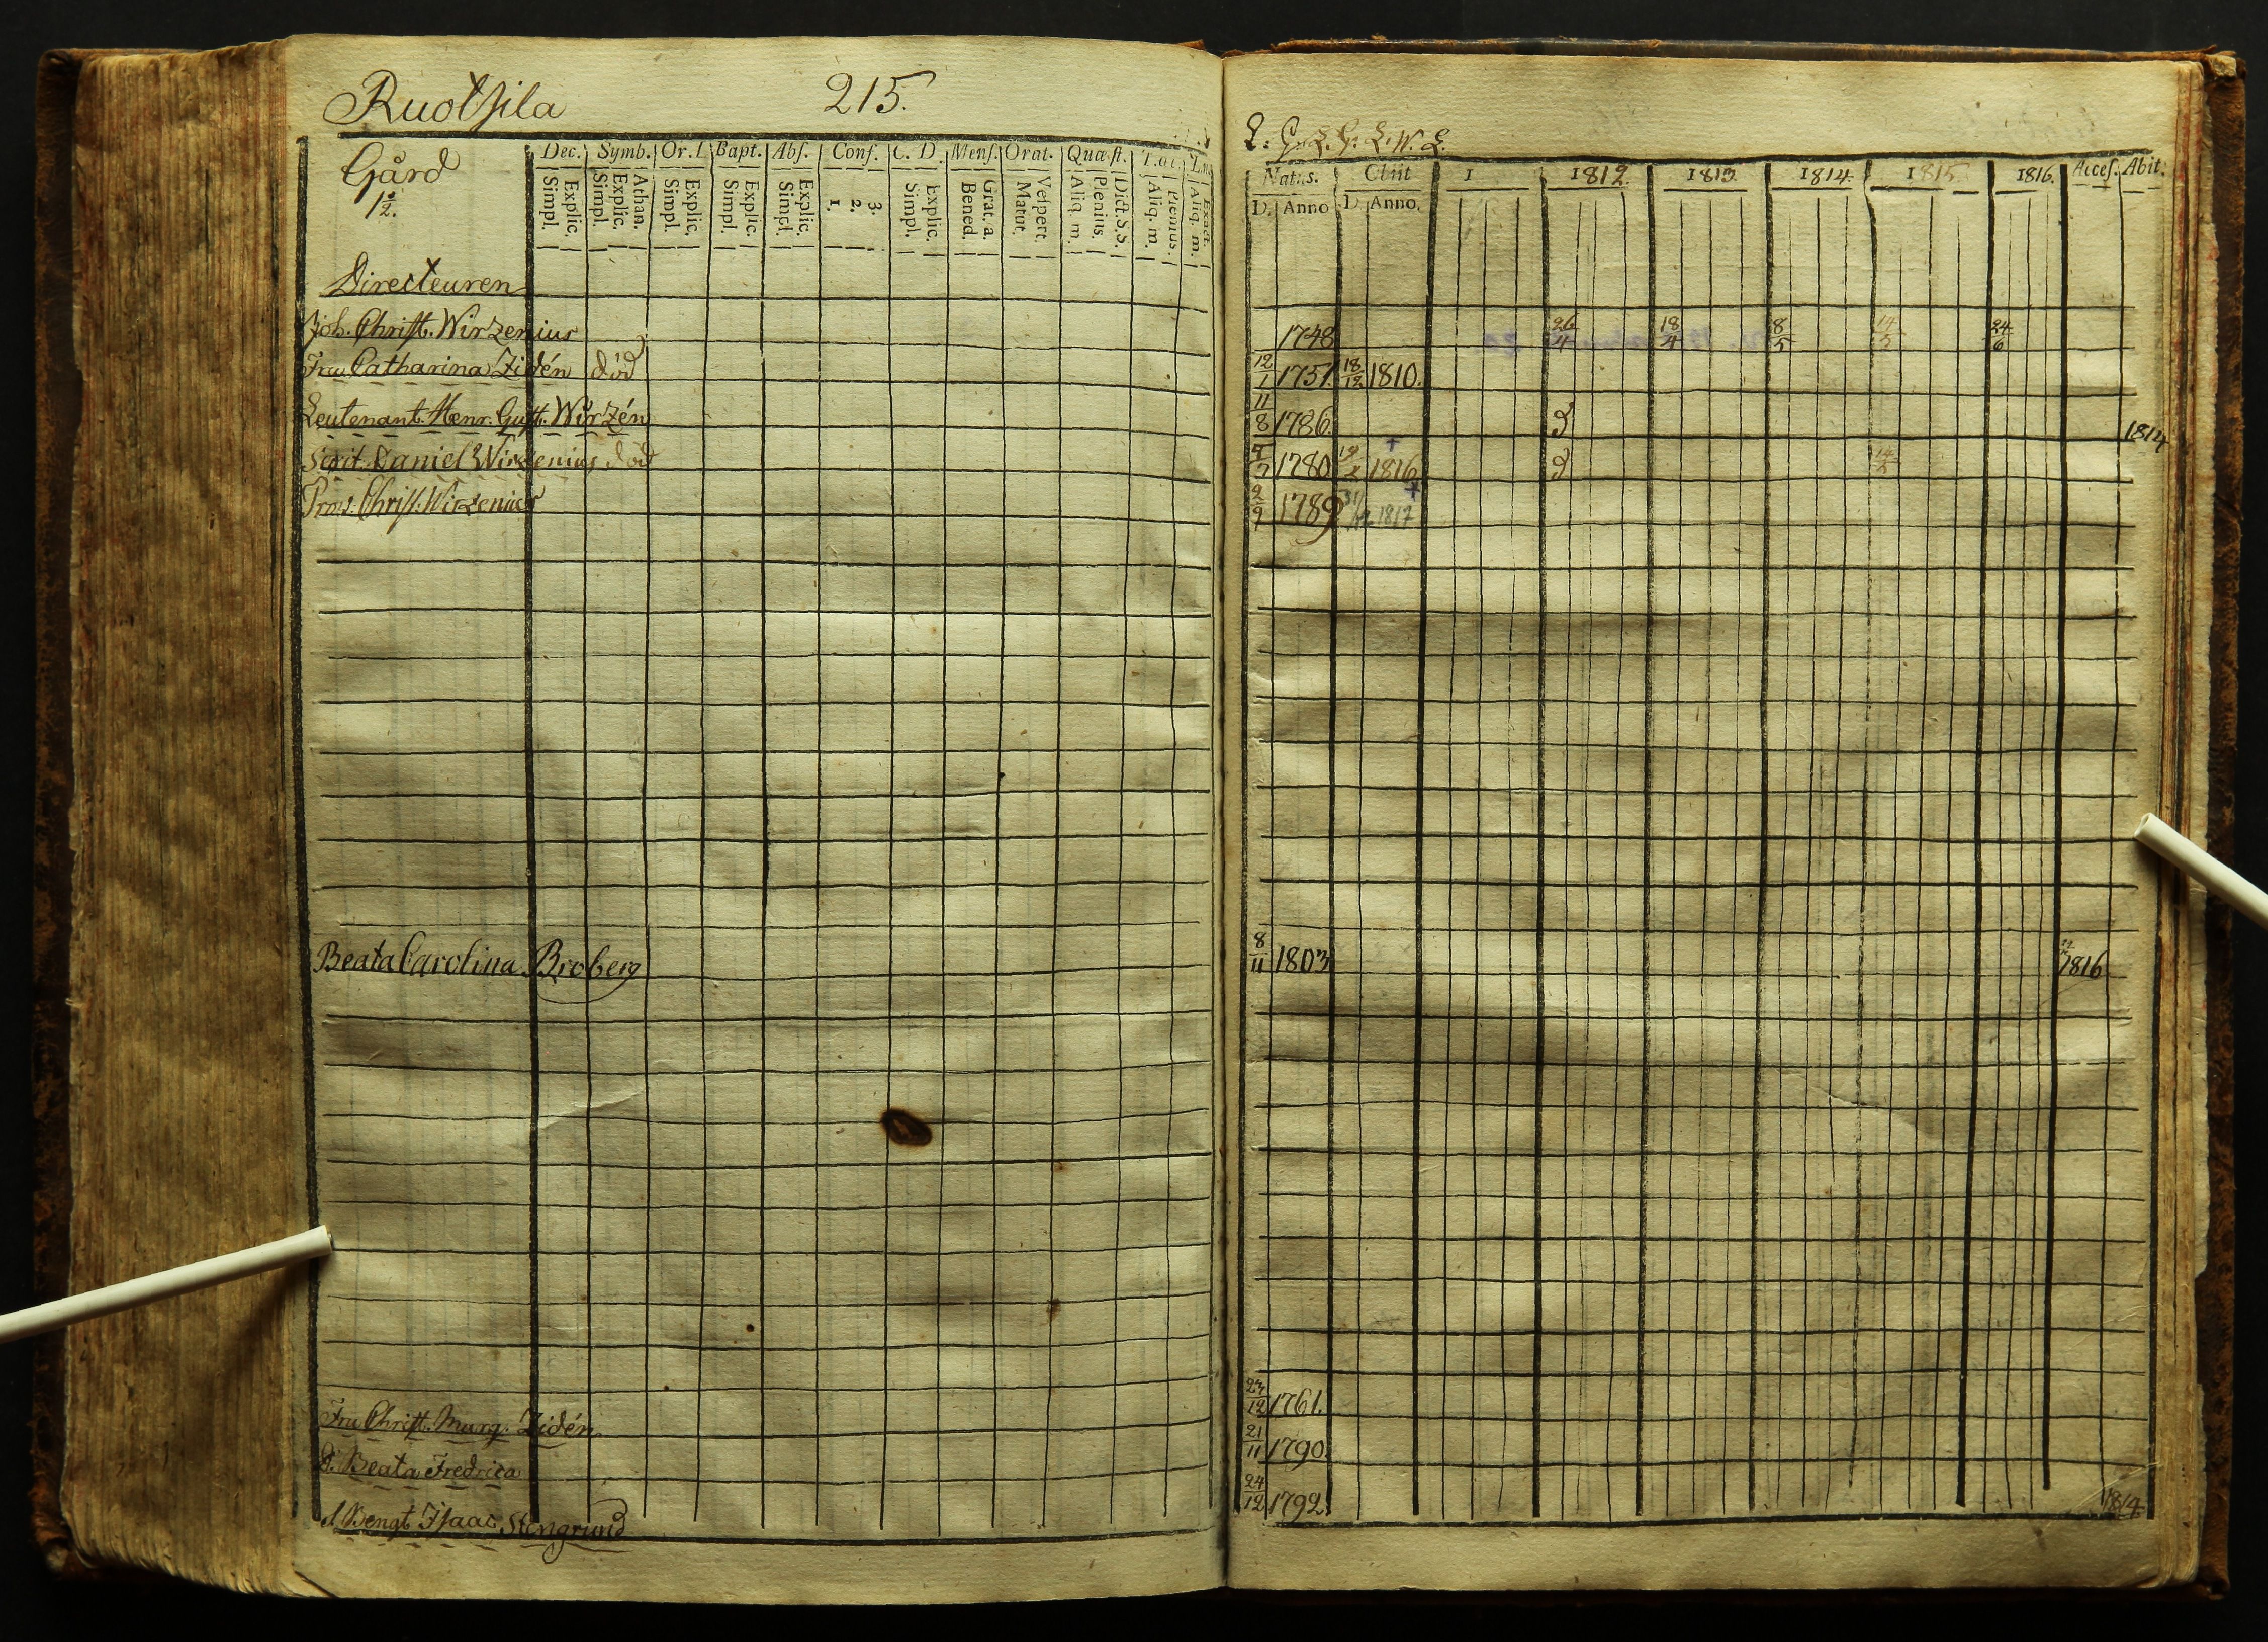 Ruotsila 215.
Gård
1/2.
Dec. Symb. Or. Bapt. Abs. Conf. C. D. Mens. Orat. Quæst.
Simpl. Explic. Simpl. Explic. Athan. Simpl. Explic. Simpl. Explic. Simpl. Explic. 1. 2. 3. Simpl. Explic. Bened. Grat. a. Matut. Vespert. Aliq. m. Plenius. Dict. S. S. Aliq. m. Plenius. Aliq. m. Exact.
Directeuren
Joh. Christ. Wirzenius
Fru Catharina Zidén död
Leutenant Henr. Gust. Wirzén
Daniel Wirzenius död
Christ. Wirzenius
Beata Carolina Broberg
Fru Christ. Marg. Zidén
d. Beata Fredrica
s Bengt Isaac Stengrund
Natus. Obiit 1 1812. 1813. 1814. 1815. 1816. Acces. Abit.
D. Anno D. Anno.
1748 26/4 18/4 8/5 14/5 24/6
12/1 1751. 18/12 1810.
11/8 1786. 1814
1780 1816 14/5
2/9 1789 1817
8/11 1803 1816
1761.
21/11 1790.
24/12 1792. 1814